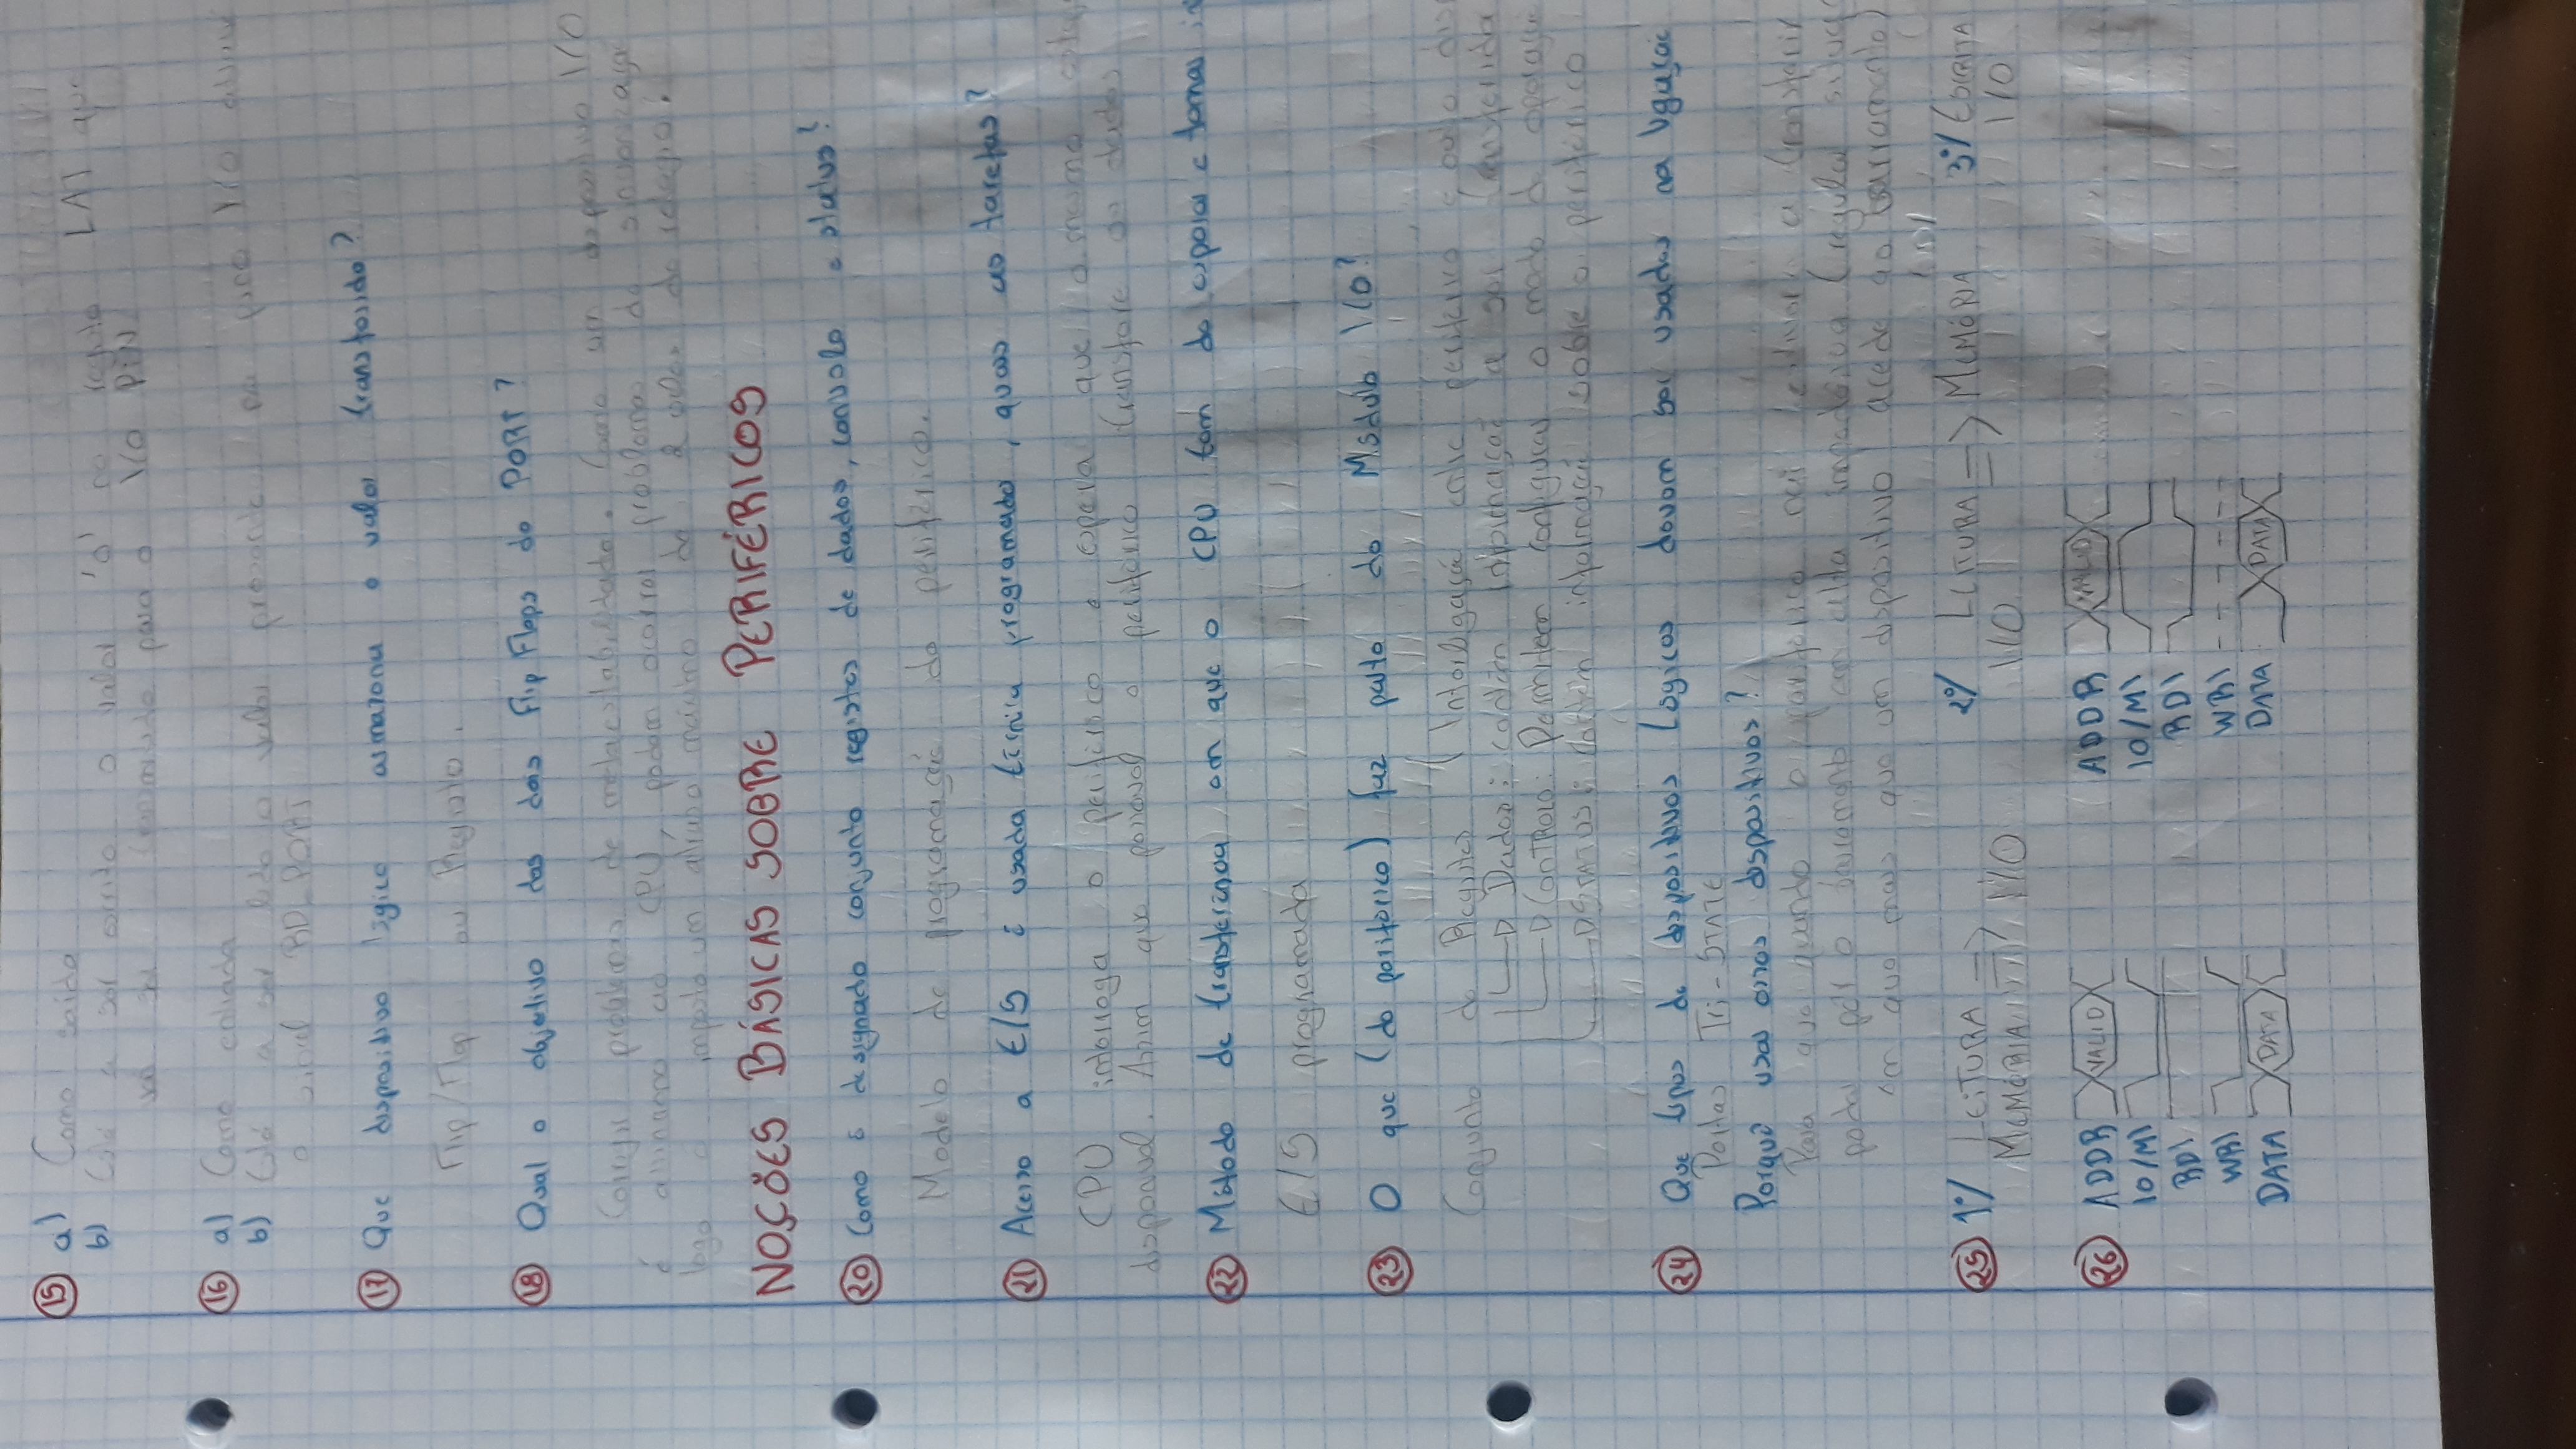 15 a) Como saída
b) Está a ser escrito o valor '0' no registo LAT que
vai ser transmitido para o I/O PIN
16 a) Como entrada
b) Está a ser lido o valor presente no pino I/O através
o sinal RD_PORT
17 Que dispositivo lógico armazena o valor transferido?
Flip/Flop ou Registo.
18 Qual o objetivo dos dois Flip Flops do PORT?
Corrigir problemas de metaestabilidade. Como um dispositivo I/O
é assíncrono ao CPU, podem ocorrer problemas de sincronização
logo é imposto um atraso máximo de 2 ciclos de relógio.
NOÇÕES BÁSICAS SOBRE PERIFÉRICOS
20 Como é designado conjunto registos de dados, controlo e status?
Modelo de programação do periférico.
21 Acesso a E/S é usada técnica programado, quais as tarefas?
CPU interroga o periférico e espera que o mesmo
disponível. Assim que possível o periférico transfere os dados
22 Método de transferência em que o CPU tem de esperar e tomar
E/S programada
23 O que (do periférico) faz parte do Módulo I/O?
Conjunto de Registos ( Interligação entre periférico e
Dados: contém informação a ser transferida
CONTROLO: Permitem configurar o modo de operação
STATUS: Contém informação sobre o periférico
24 Que tipos de dispositivos lógicos devem ser usados na ligação
Portas Tri-STATE
Porquê usar esses dispositivos?
Para que quando o periférico não a transferir
poder pôr o barramento em alta impedância (regular
em que mais que um dispositivo acede ao barramento)
25 1º/ LEITURA MEMÓRIA => I/O 2º/ LEITURA I/O => MEMÓRIA 3º/ ESCRITA I/O
26 ADDR VALID ADDR VALID
IO/M\ IO/M\
RD\ RD\
WR\ WR\
DATA DATA DATA DATA